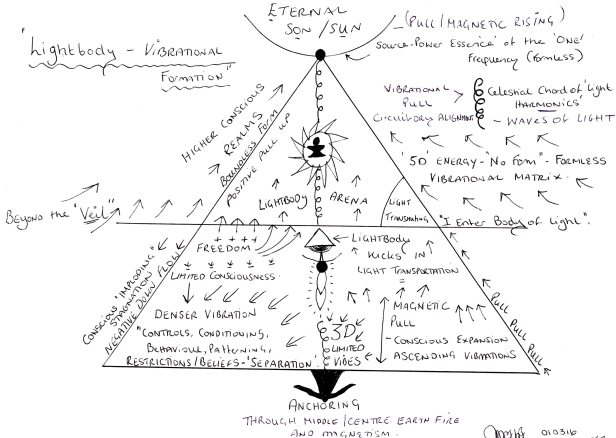 ETERNAL
SON / SUN
"Lightbody - VIBRATIONAL
FORMATION"
(PULL / MAGNETIC RISING)
Source-Power Essence' of the 'ONE'
Frequency (Formless)
VIBRATIONAL
PULL
CIRCUITORY ALIGNMENT
Celestial Chord of 'Light
HARMONICS'
- WAVES OF LIGHT
HIGHER CONSCIOUS
REALMS
BOUNDLESS FORM
POSITIVE PULL UP
'5D' ENERGY - "NO FORM" - FORMLESS
VIBRATIONAL MATRIX.
LIGHTBODY ARENA
LIGHT
TRANSMUTING
BEYOND THE "VEIL"
"I ENTER BODY OF LIGHT".
FREEDOM
++++
LIMITED CONSCIOUSNESS
LIGHTBODY
'KICKS' IN
LIGHT TRANSPORTATION
=
CONSCIOUS "IMPLODING"
STAGNATION
NEGATIVE DOWN FLOW
DENSER VIBRATION
"CONTROLS, CONDITIONING,
BEHAVIOUR, PATTERNING,
RESTRICTIONS/BELIEFS - 'SEPARATION'
3D
LIMITED
VIBES
MAGNETIC
PULL
- CONSCIOUS EXPANSION
ASCENDING VIBRATIONS
PULL PULL PULL
ANCHORING
THROUGH MIDDLE / CENTRE EARTH FIRE
AND MAGNETISM.
010316